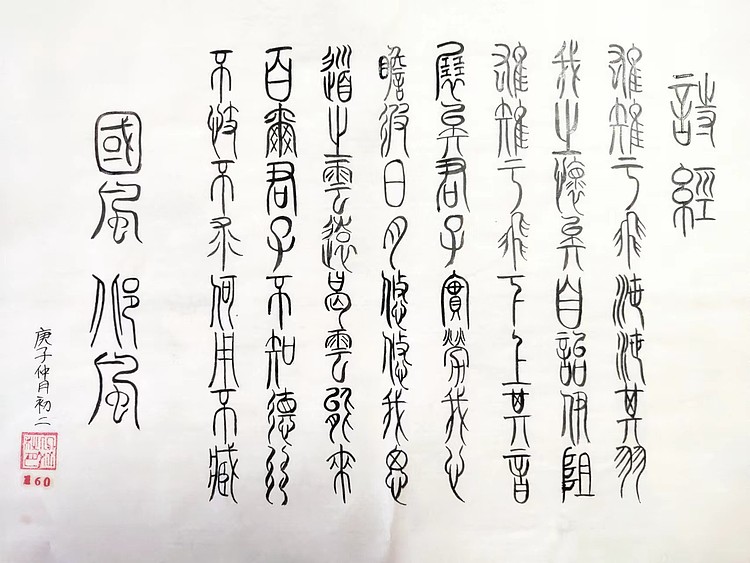 詩經
雄雉于飛泄泄其羽
我之懷矣自詒伊阻
雄雉于飛下上其音
展矣君子實勞我心
瞻彼日月悠悠我思
道之雲遠曷雲能來
百爾君子不知德行
不忮不求何用不臧
國風 邶風
庚子仲月初二
160